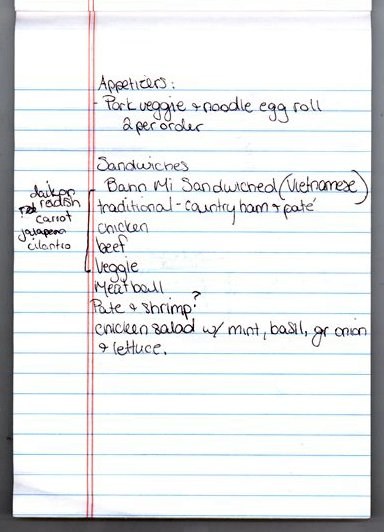 Appetizers:
- Pork veggie + noodle egg roll
2 per order
Sandwiches
Bann Mi Sandwiched (Vietnamese)
traditional - country ham + paté
chicken
beef
Veggie
daikon
radish
carrot
jalapeno
cilantro
Meatball
Pate + shrimp?
chicken salad w/ mint, basil, gr onion
+ lettuce.